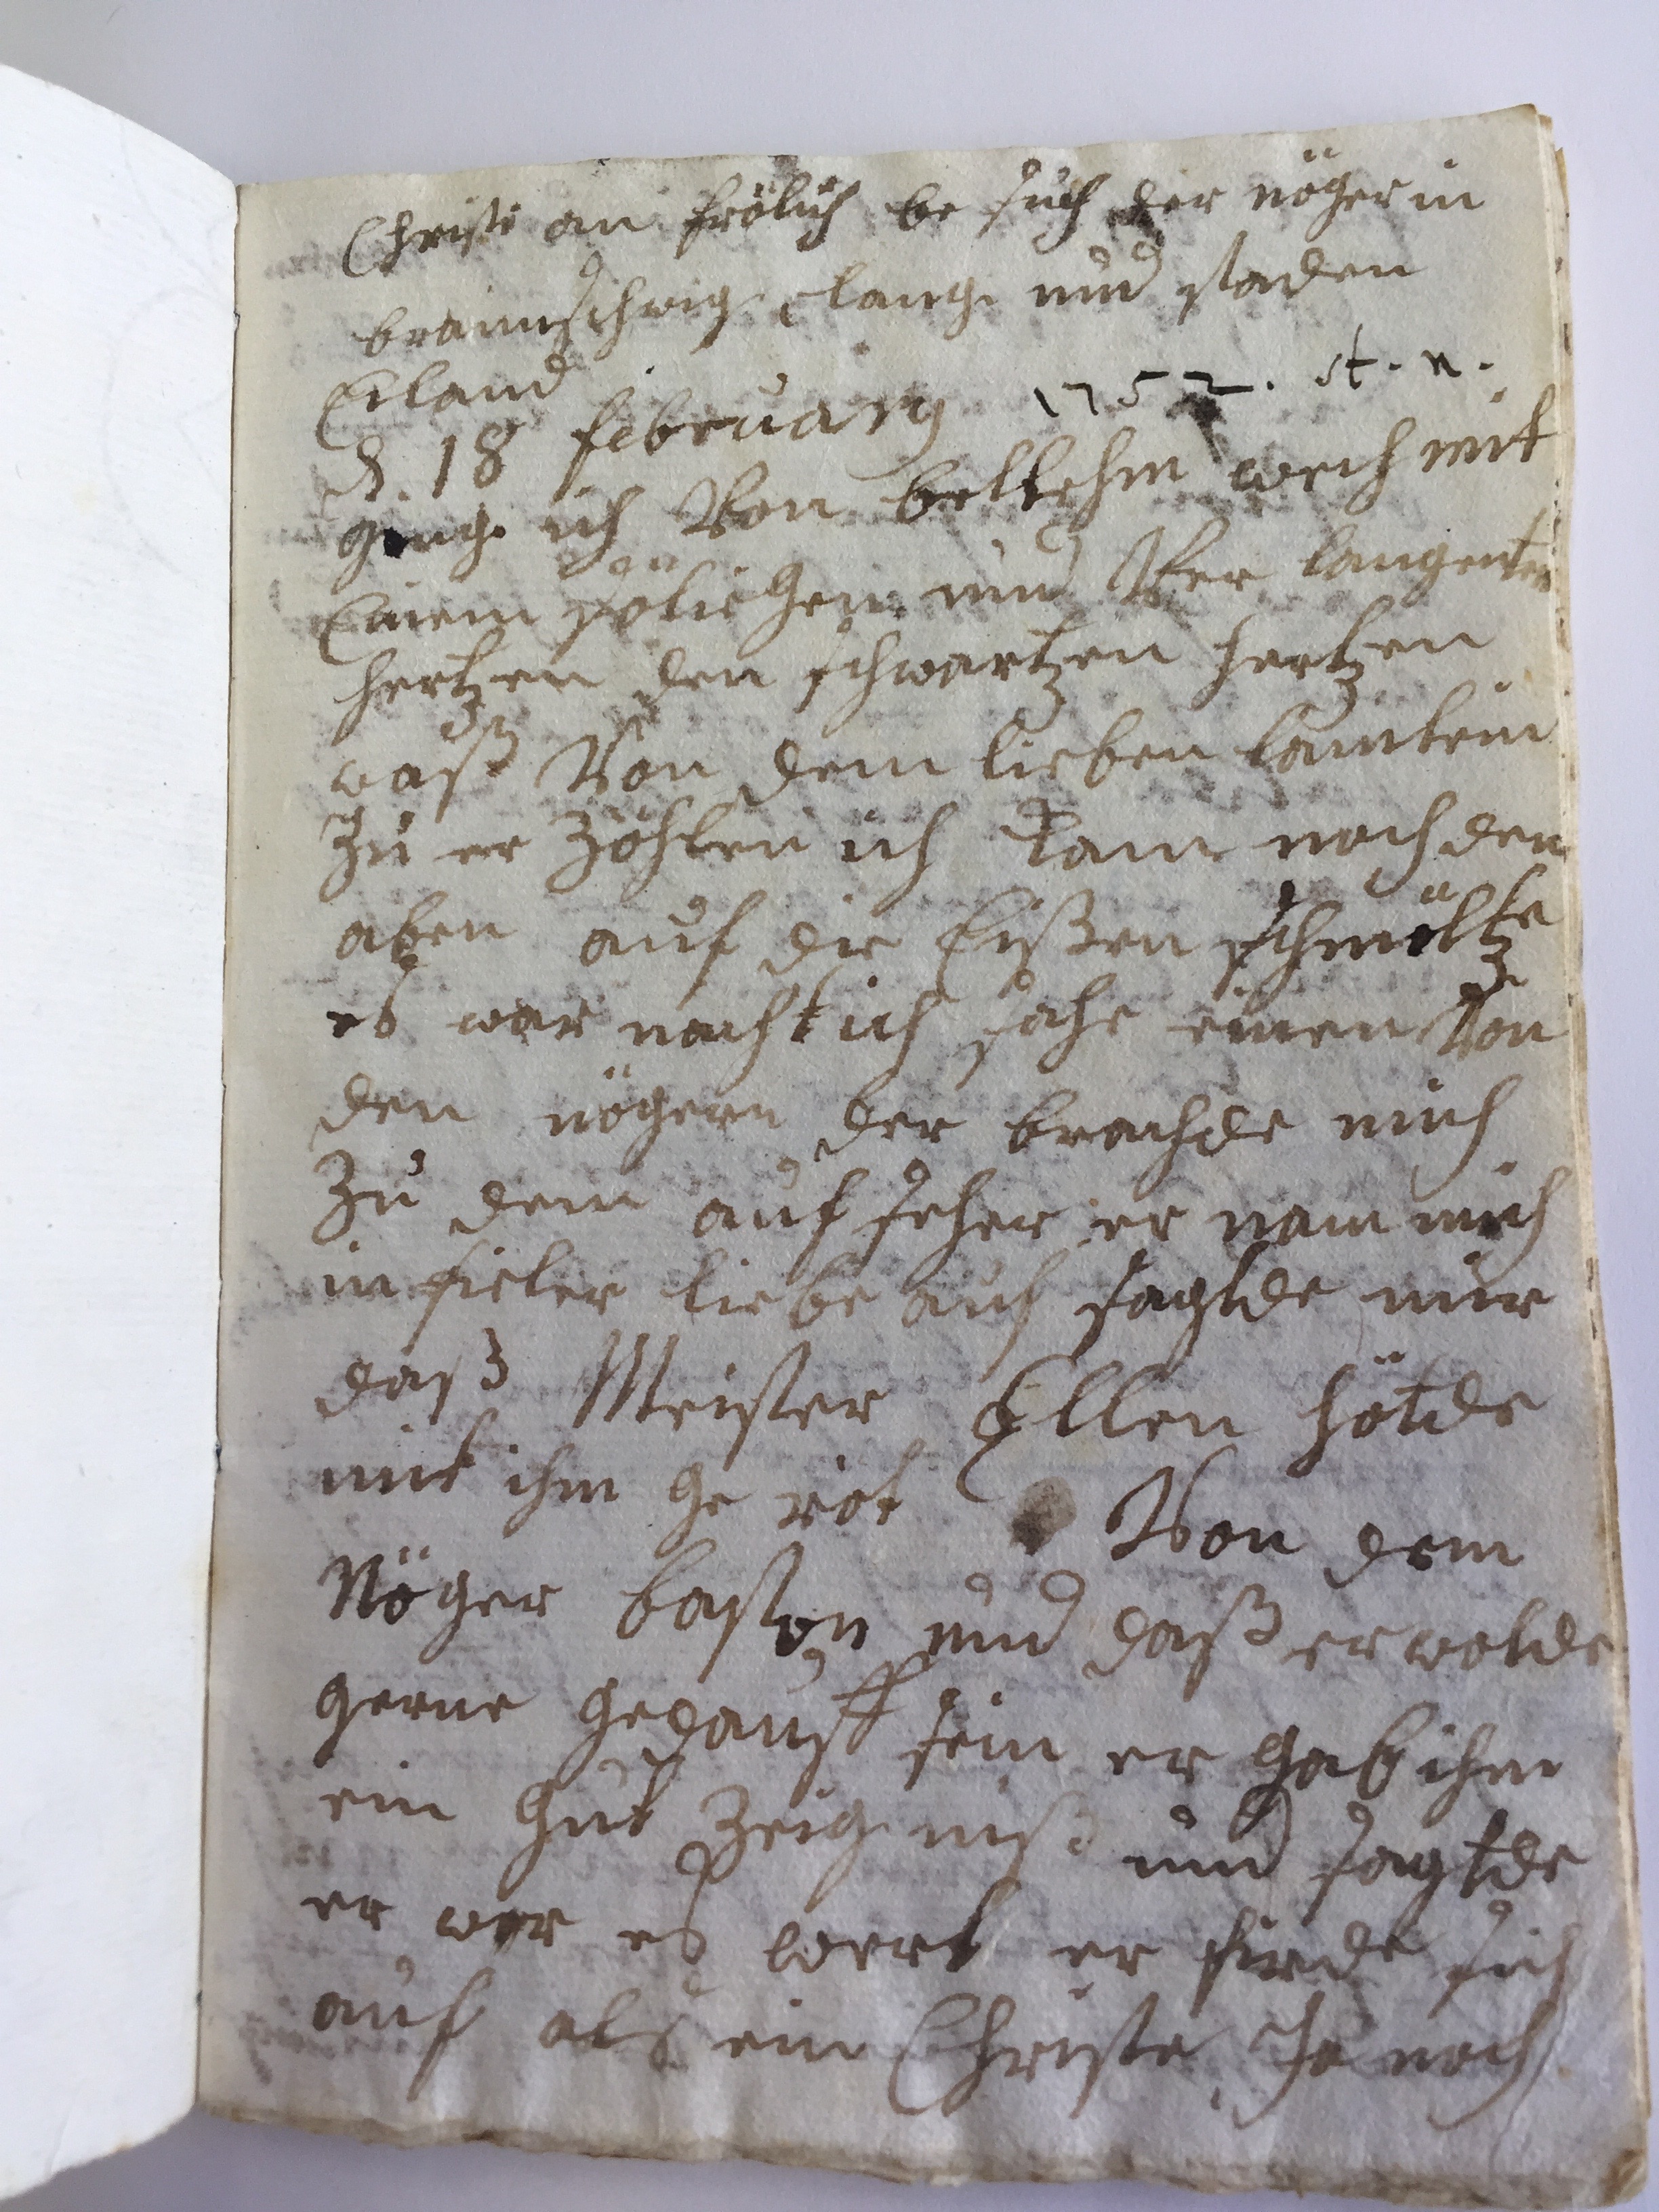 Christi an frölich be such der nöger in
braunschwig, lang und staden
Eiland
d. 18 februarÿ 1752. st. n.
ging ich Von betlehm wech mit
Einem sölichen und Ver langenten
hertzen den schwartzen hertzen
waß Von dem lieben lämlein
Zu er Zöhlen ich kam noch den
aben auf die Eißen schmöltze
es war nacht ich sahe einen Von
den nögern der brachde mich
Zu dem auf seher er nam mich
in fieler liebe auf sagtde mir
daß Meister Ellen hötde
mit ihm ge röt Von dem
Nöger baston und daß er wolde
gerne gedauft sein er gab ihm
ein gut Zeig niß und sagtde
er wer es wert er firde sich
auf als ein Christe Ja noch